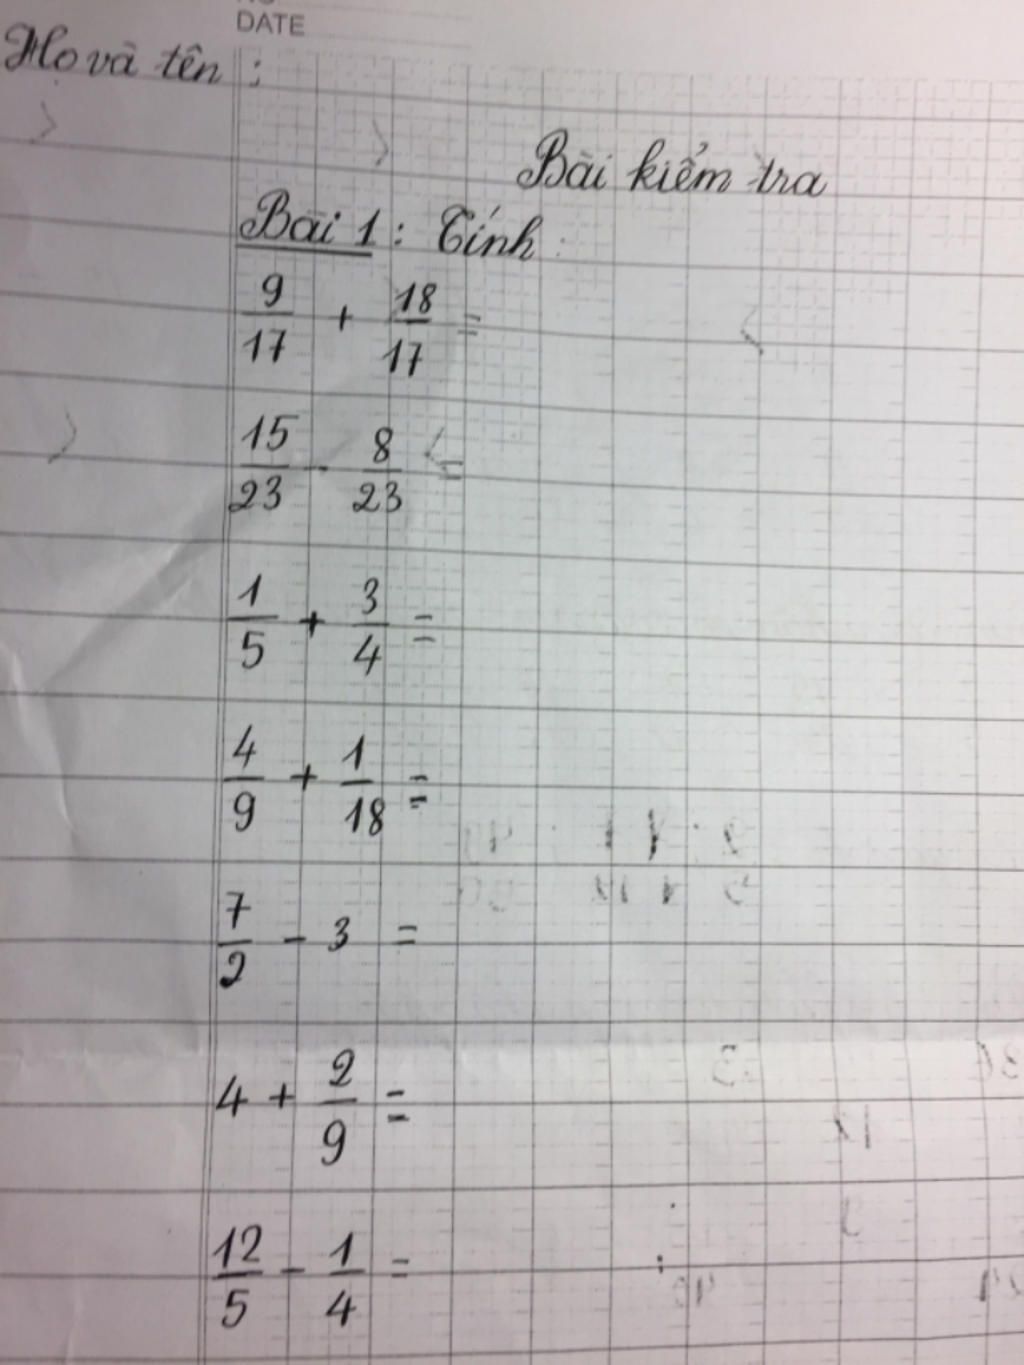 DATE
Họ và tên :
Bài kiểm tra
Bài 1 : Tính :
9/17 + 18/17 =
15/23 - 8/23 =
1/5 + 3/4 =
4/9 + 1/18 =
7/2 - 3 =
4 + 2/9 =
12/5 - 1/4 =